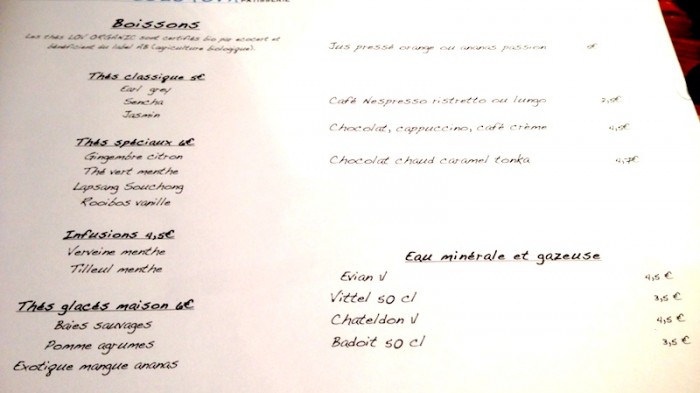 PATISSERIE
Boissons
Les thés LOV ORGANIC sont certifiés bio par ecocert et
bénéficient du label AB (agriculture biologique).
Thés classique 5€
Earl grey
Sencha
Jasmin
Thés spéciaux 6€
Gingembre citron
Thé vert menthe
Lapsang Souchong
Rooibos vanille
Infusions 4,5€
Verveine menthe
Tilleul menthe
Thés glacés maison 6€
Baies sauvages
Pomme agrumes
Exotique mangue ananas
Jus pressé orange ou ananas passion
Café Nespresso ristretto ou lungo 2,5€
Chocolat, cappuccino, café crème 4,5€
Chocolat chaud caramel tonka 4,7€
Eau minérale et gazeuse
Evian V 4,5 €
Vittel 50 cl 3,5 €
Chateldon V 4,5 €
Badoit 50 cl 3,5 €